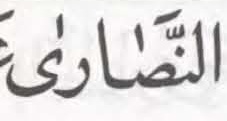 النَّصَٰارىٰ